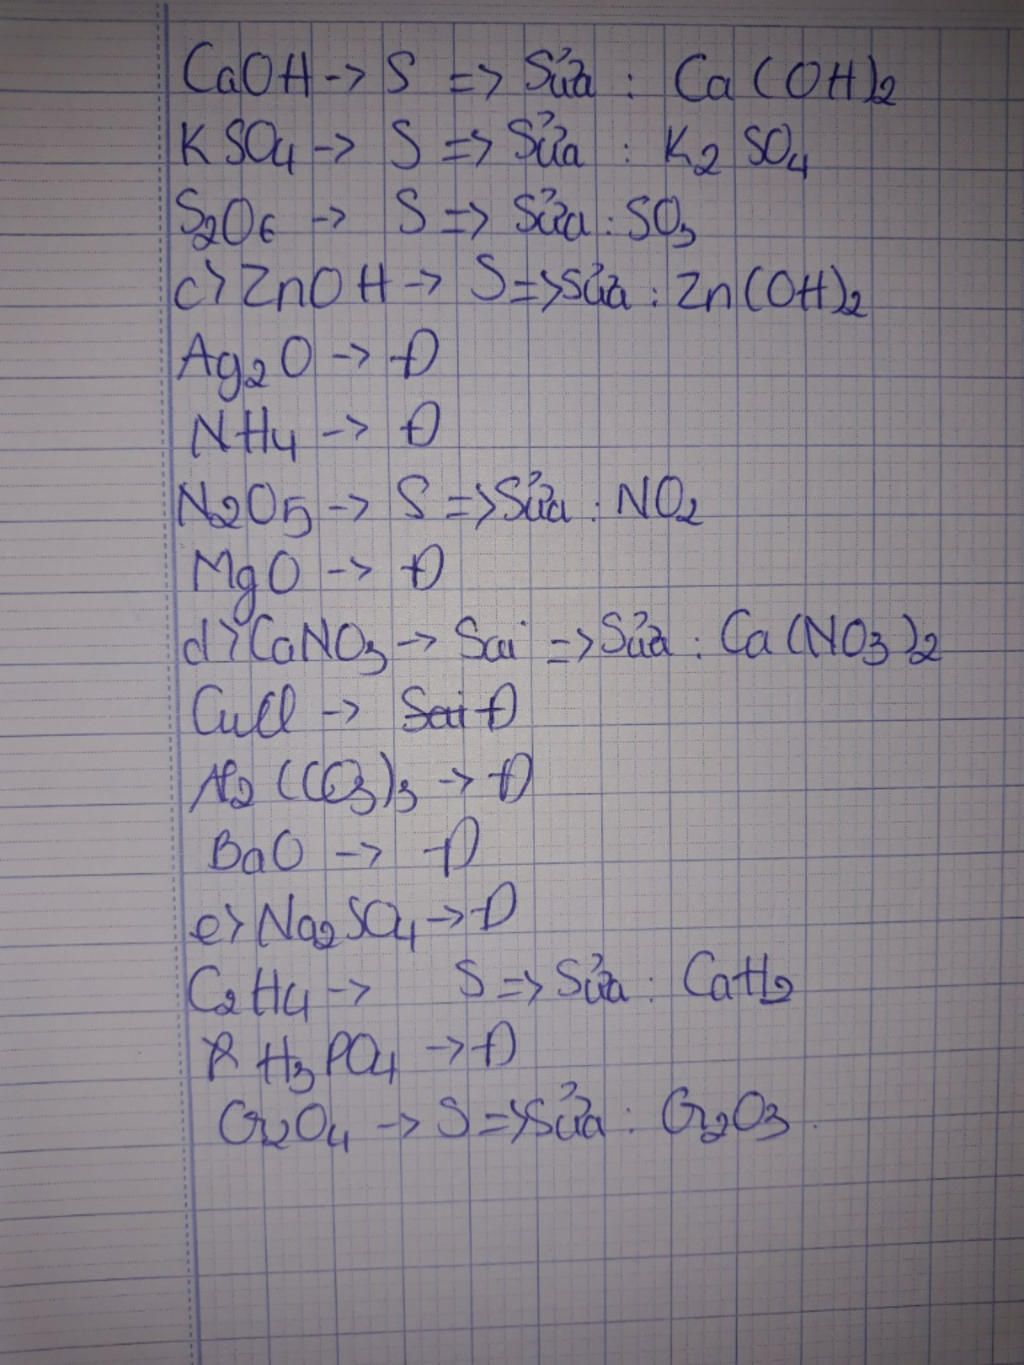 CaOH -> S => Sửa : Ca(OH)2
KSO4 -> S => Sửa : K2SO4
S2O6 -> S => Sửa : SO3
c> ZnOH -> S => Sửa : Zn(OH)2
Ag2O -> Đ
NH4 -> Đ
N2O5 -> S => Sửa : NO2
MgO -> Đ
d> CaNO3 -> Sai => Sửa : Ca(NO3)2
CuCl -> Sai Đ
Al2(CO3)3 -> Đ
BaO -> Đ
e> Na2SO4 -> Đ
C2H4 -> S => Sửa : CaH2
H3PO4 -> Đ
Cr2O4 -> S => Sửa : Cr2O3